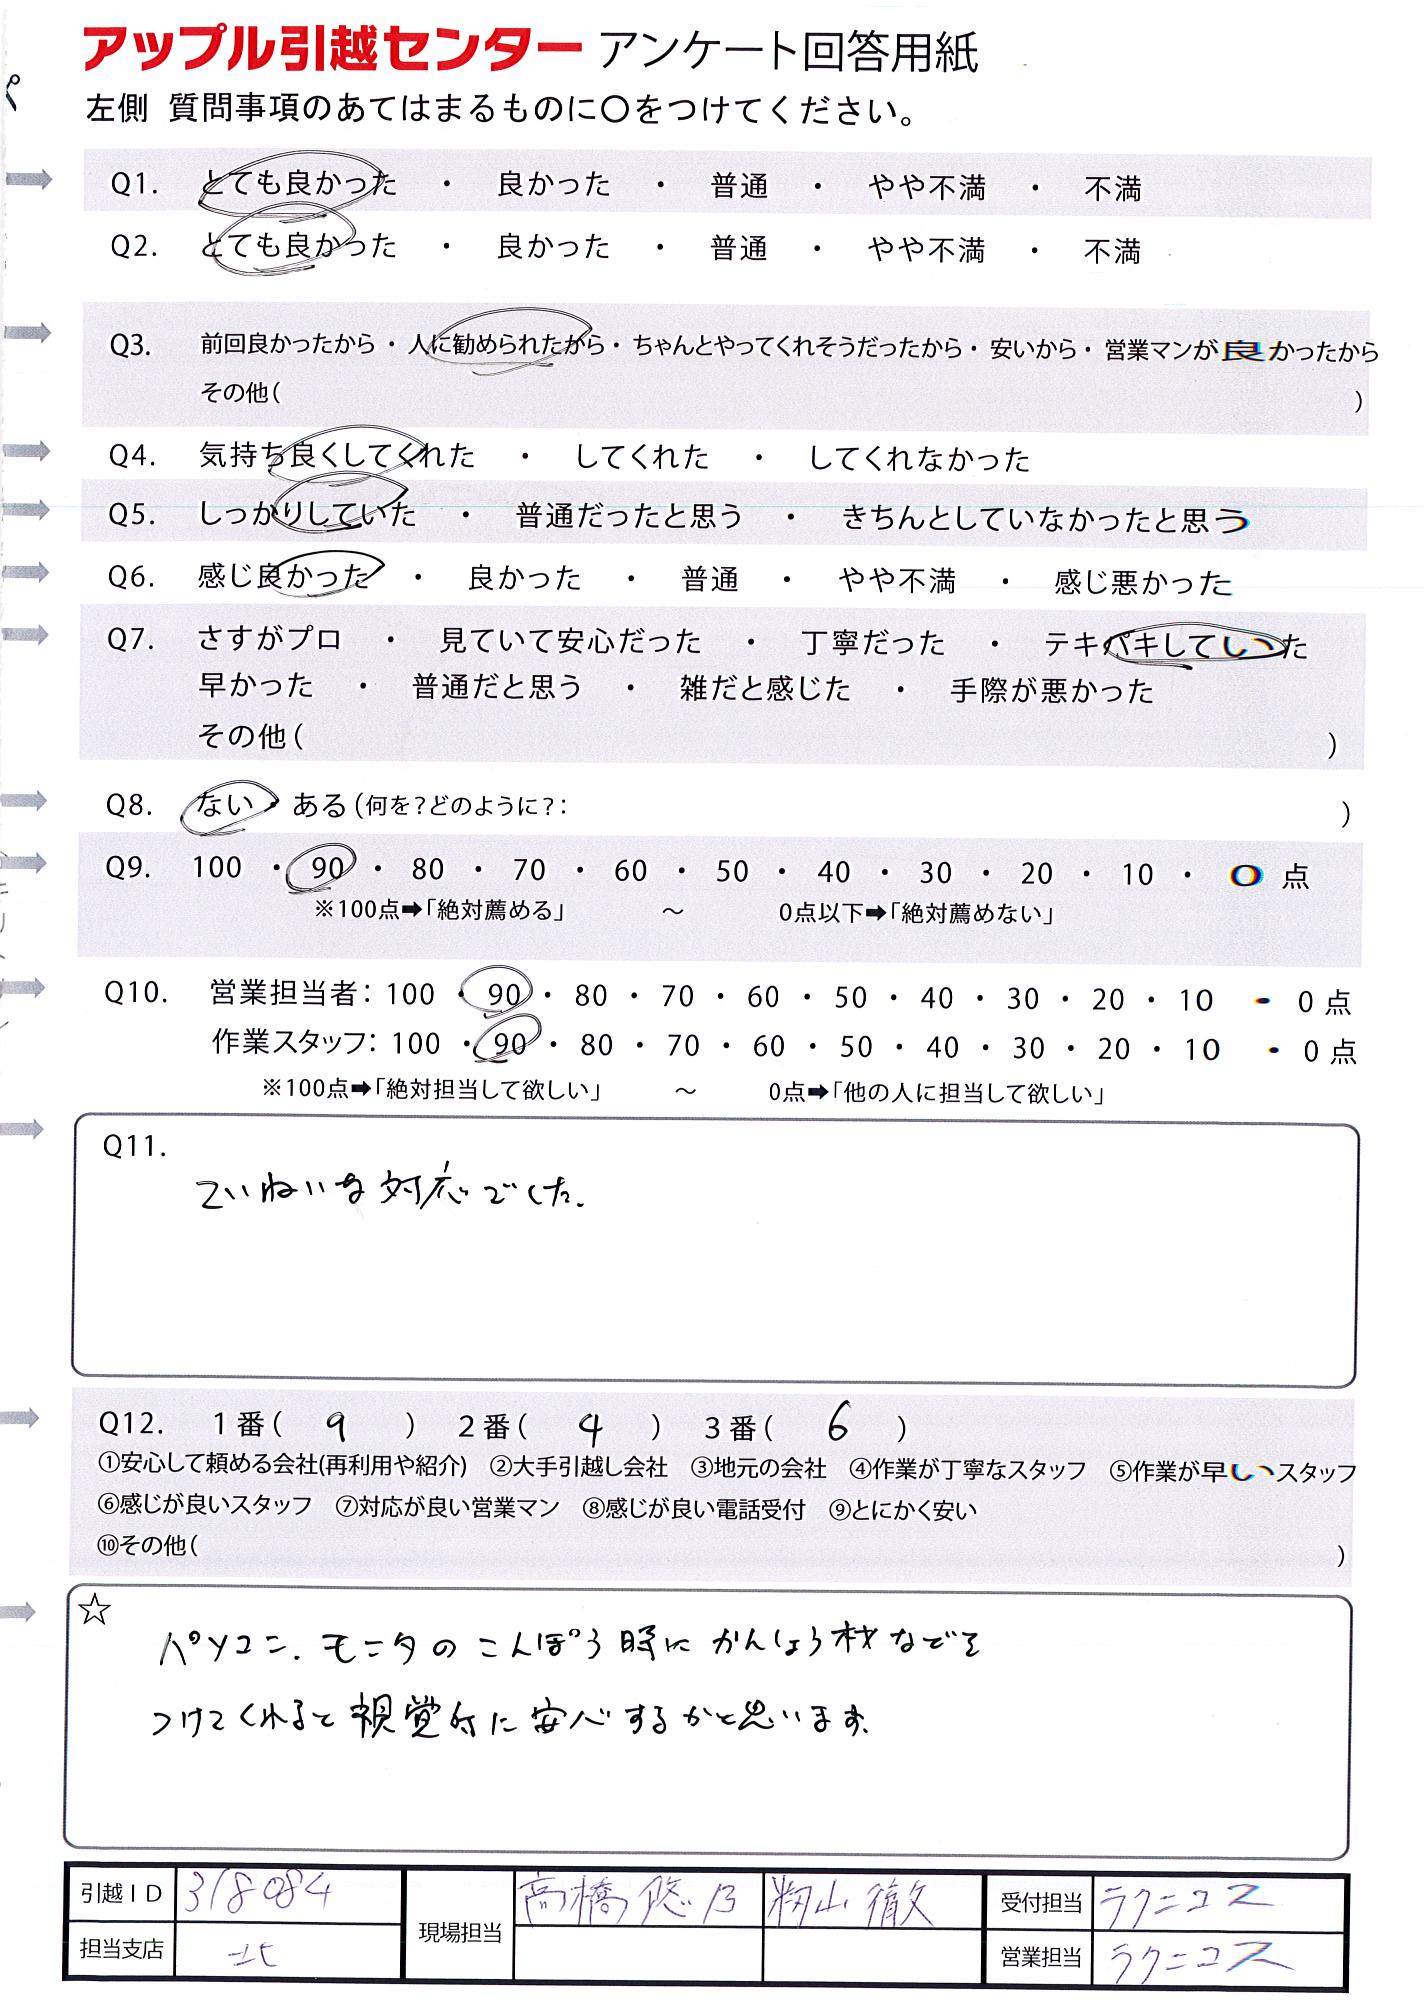 アップル引越センター アンケート回答用紙
左側 質問事項のあてはまるものに〇をつけてください。
Q1. とても良かった ・ 良かった ・ 普通 ・ やや不満 ・ 不満
Q2. とても良かった ・ 良かった ・ 普通 ・ やや不満 ・ 不満
Q3. 前回良かったから・人に勧められたから・ちゃんとやってくれそうだったから・安いから・営業マンが良かったから
その他( )
Q4. 気持ち良くしてくれた ・ してくれた ・ してくれなかった
Q5. しっかりしていた ・ 普通だったと思う ・ きちんとしていなかったと思う
Q6. 感じ良かった ・ 良かった ・ 普通 ・ やや不満 ・ 感じ悪かった
Q7. さすがプロ ・ 見ていて安心だった ・ 丁寧だった ・ テキパキしていた
早かった ・ 普通だと思う ・ 雑だと感じた ・ 手際が悪かった
その他( )
Q8. ない・ ある(何を?どのように?: )
Q9. 100 ・ 90 ・ 80 ・ 70 ・ 60 ・ 50 ・ 40 ・ 30 ・ 20 ・ 10 ・ 0 点
※100点➡「絶対薦める」 ～ 0点以下➡「絶対薦めない」
Q10. 営業担当者: 100 ・ 90 ・ 80 ・ 70 ・ 60 ・ 50 ・ 40 ・ 30 ・ 20 ・ 10 ・ 0 点
作業スタッフ: 100 ・ 90 ・ 80 ・ 70 ・ 60 ・ 50 ・ 40 ・ 30 ・ 20 ・ 10 ・ 0 点
※100点➡「絶対担当して欲しい」 ～ 0点➡「他の人に担当して欲しい」
Q11.
ていねいな対応でした.
Q12. 1番( 9 ) 2番( 4 ) 3番( 6 )
①安心して頼める会社(再利用や紹介) ②大手引越し会社 ③地元の会社 ④作業が丁寧なスタッフ ⑤作業が早いスタッフ
⑥感じが良いスタッフ ⑦対応が良い営業マン ⑧感じが良い電話受付 ⑨とにかく安い
⑩その他( )
☆
パソコン. モニタのこんぽう時に かんしょう材などを
つけてくれると視覚的に安心するかと思います.
引越ID 318084 現場担当 高橋 悠乃 籾山 徹 受付担当 ラクニコス
担当支店 北 営業担当 ラクニコス